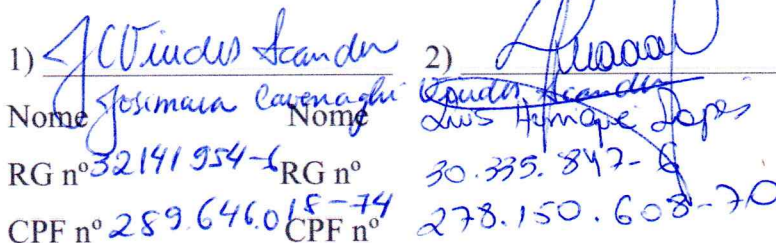 1) JCVindes Scander 2)
Nome Josimara Cavenaghi Nome Luis Henrique Lopes
RG nº 32141954-6 RG nº 30.335.847-6
CPF nº 289.646.018-74 CPF nº 278.150.608-70